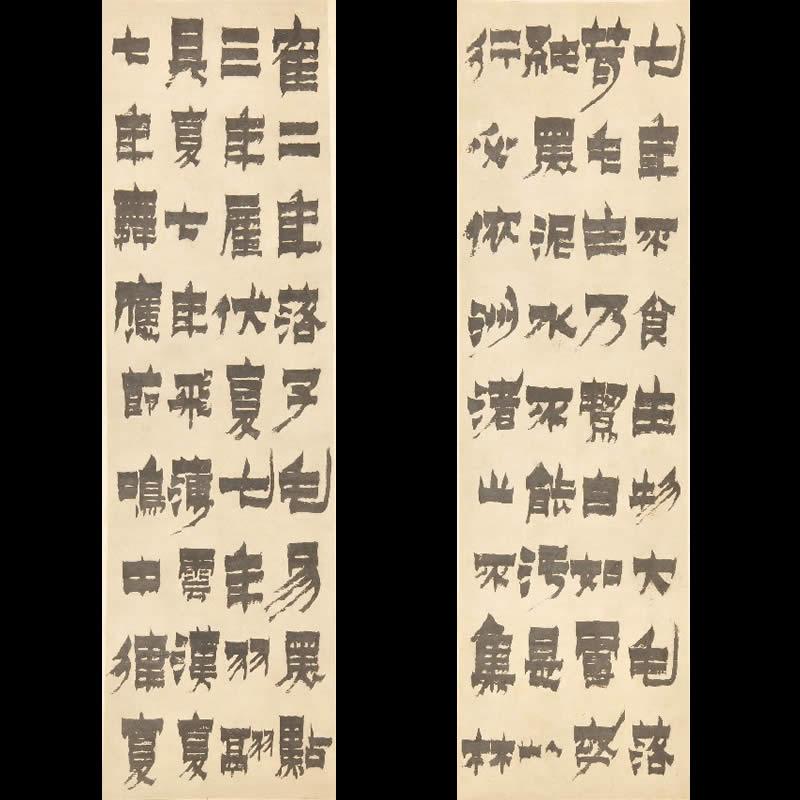 隺二年落子毛易黑點
三年產伏夏七年羽翮
具夏七年飛薄雲漢夏
七年舞應節鳴中律夏
七年不食生物大毛落
茸毛生乃白如雪或
純黑泥水不能污是以
行必依洲渚止不集林